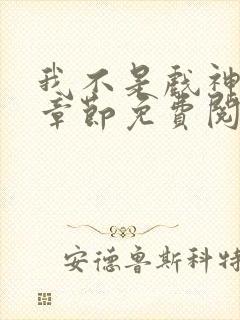 我不是戏神
章节免费阅
安德鲁斯科特